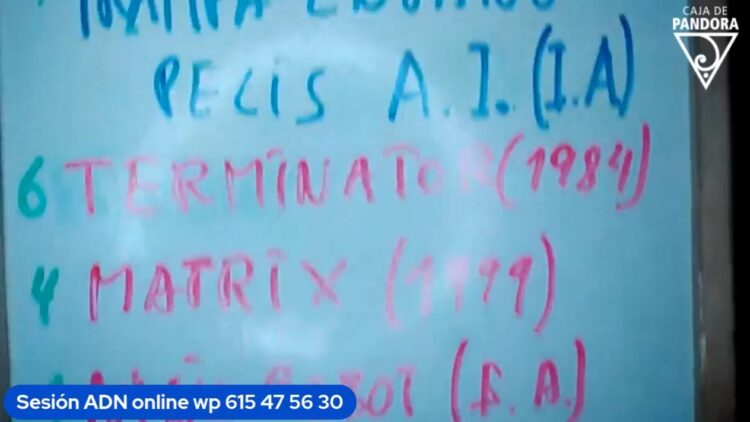 CAJA DE
PANDORA
PELIS A.I. (I.A)
6 TERMINATOR (1984)
4 MATRIX (1999)
(I. A.)
Sesión ADN online wp 615 47 56 30